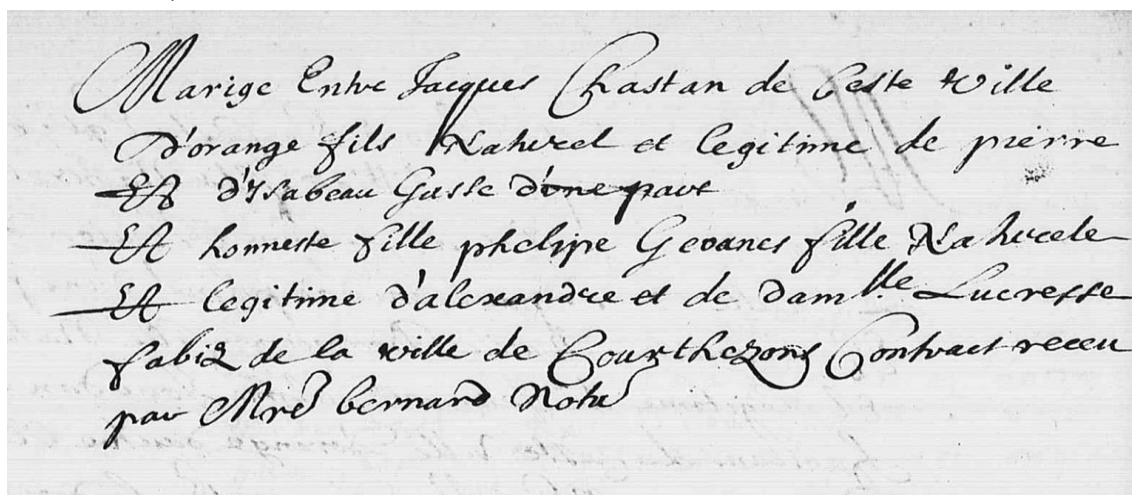 Marige Entre Jacques Chastan de Ceste ville
D'orange fils Naturel et legitime de pierre
Et d'Isabeau Gasse d'une part
Et honneste fille phelipe Gevanes fille Naturele
Et legitime d'alexandre et de damlle Lucresse
fabiz de la ville de Courthezons Contract receu
par Mre bernard Notre